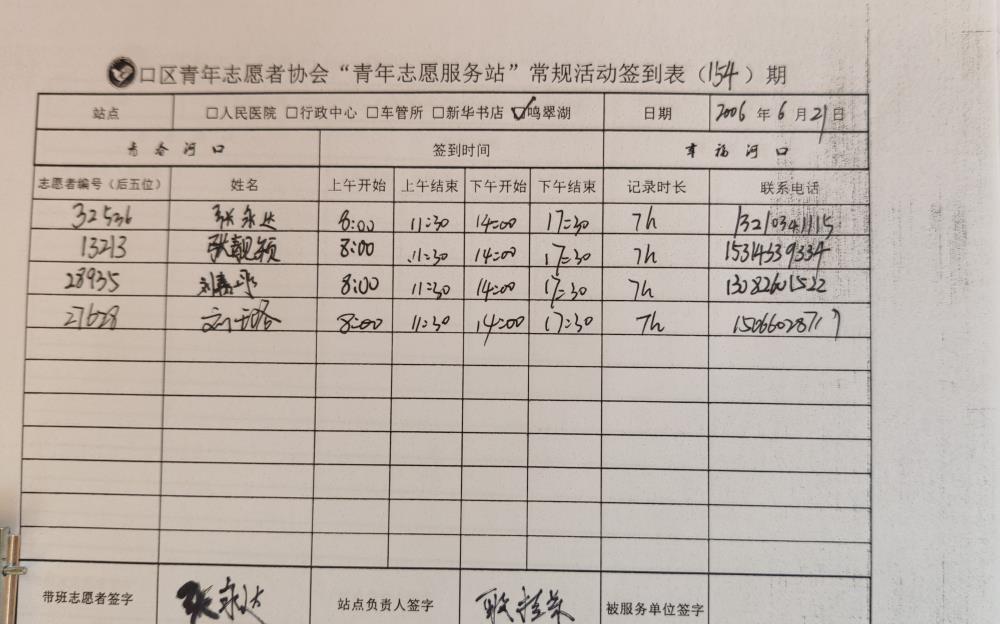 口区青年志愿者协会“青年志愿服务站”常规活动签到表（154）期
站点 □人民医院 □行政中心 □车管所 □新华书店 ☑鸣翠湖 日期 2006 年 6 月 21 日
青春河口 签到时间 幸福河口
志愿者编号（后五位） 姓名 上午开始 上午结束 下午开始 下午结束 记录时长 联系电话
32536 张永达 8:00 11:30 14:00 17:30 7h 13210341115
13213 张靓颖 8:00 11:30 14:00 17:30 7h 15314539334
28935 8:00 11:30 14:00 17:30 7h 13082601522
27628 刘 8:00 11:30 14:00 17:30 7h 15066028717
带班志愿者签字 张永达 站点负责人签字 耿桂荣 被服务单位签字